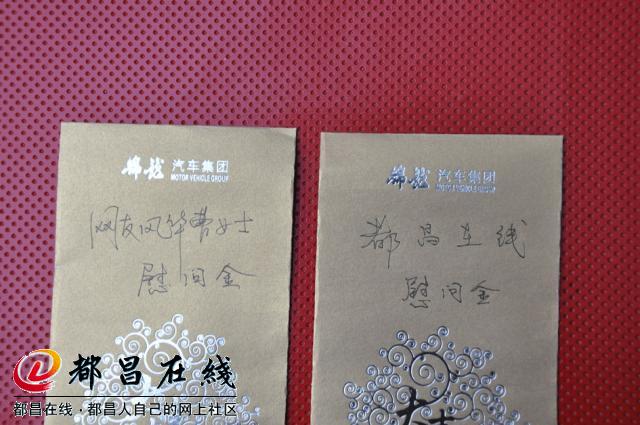 锦龙 汽车集团
MOTOR VEHICLE GROUP
网友风华曹女士
慰问金
锦龙 汽车集团
MOTOR VEHICLE GROUP
都昌在线
慰问金
都昌在線
都昌在线·都昌人自己的网上社区